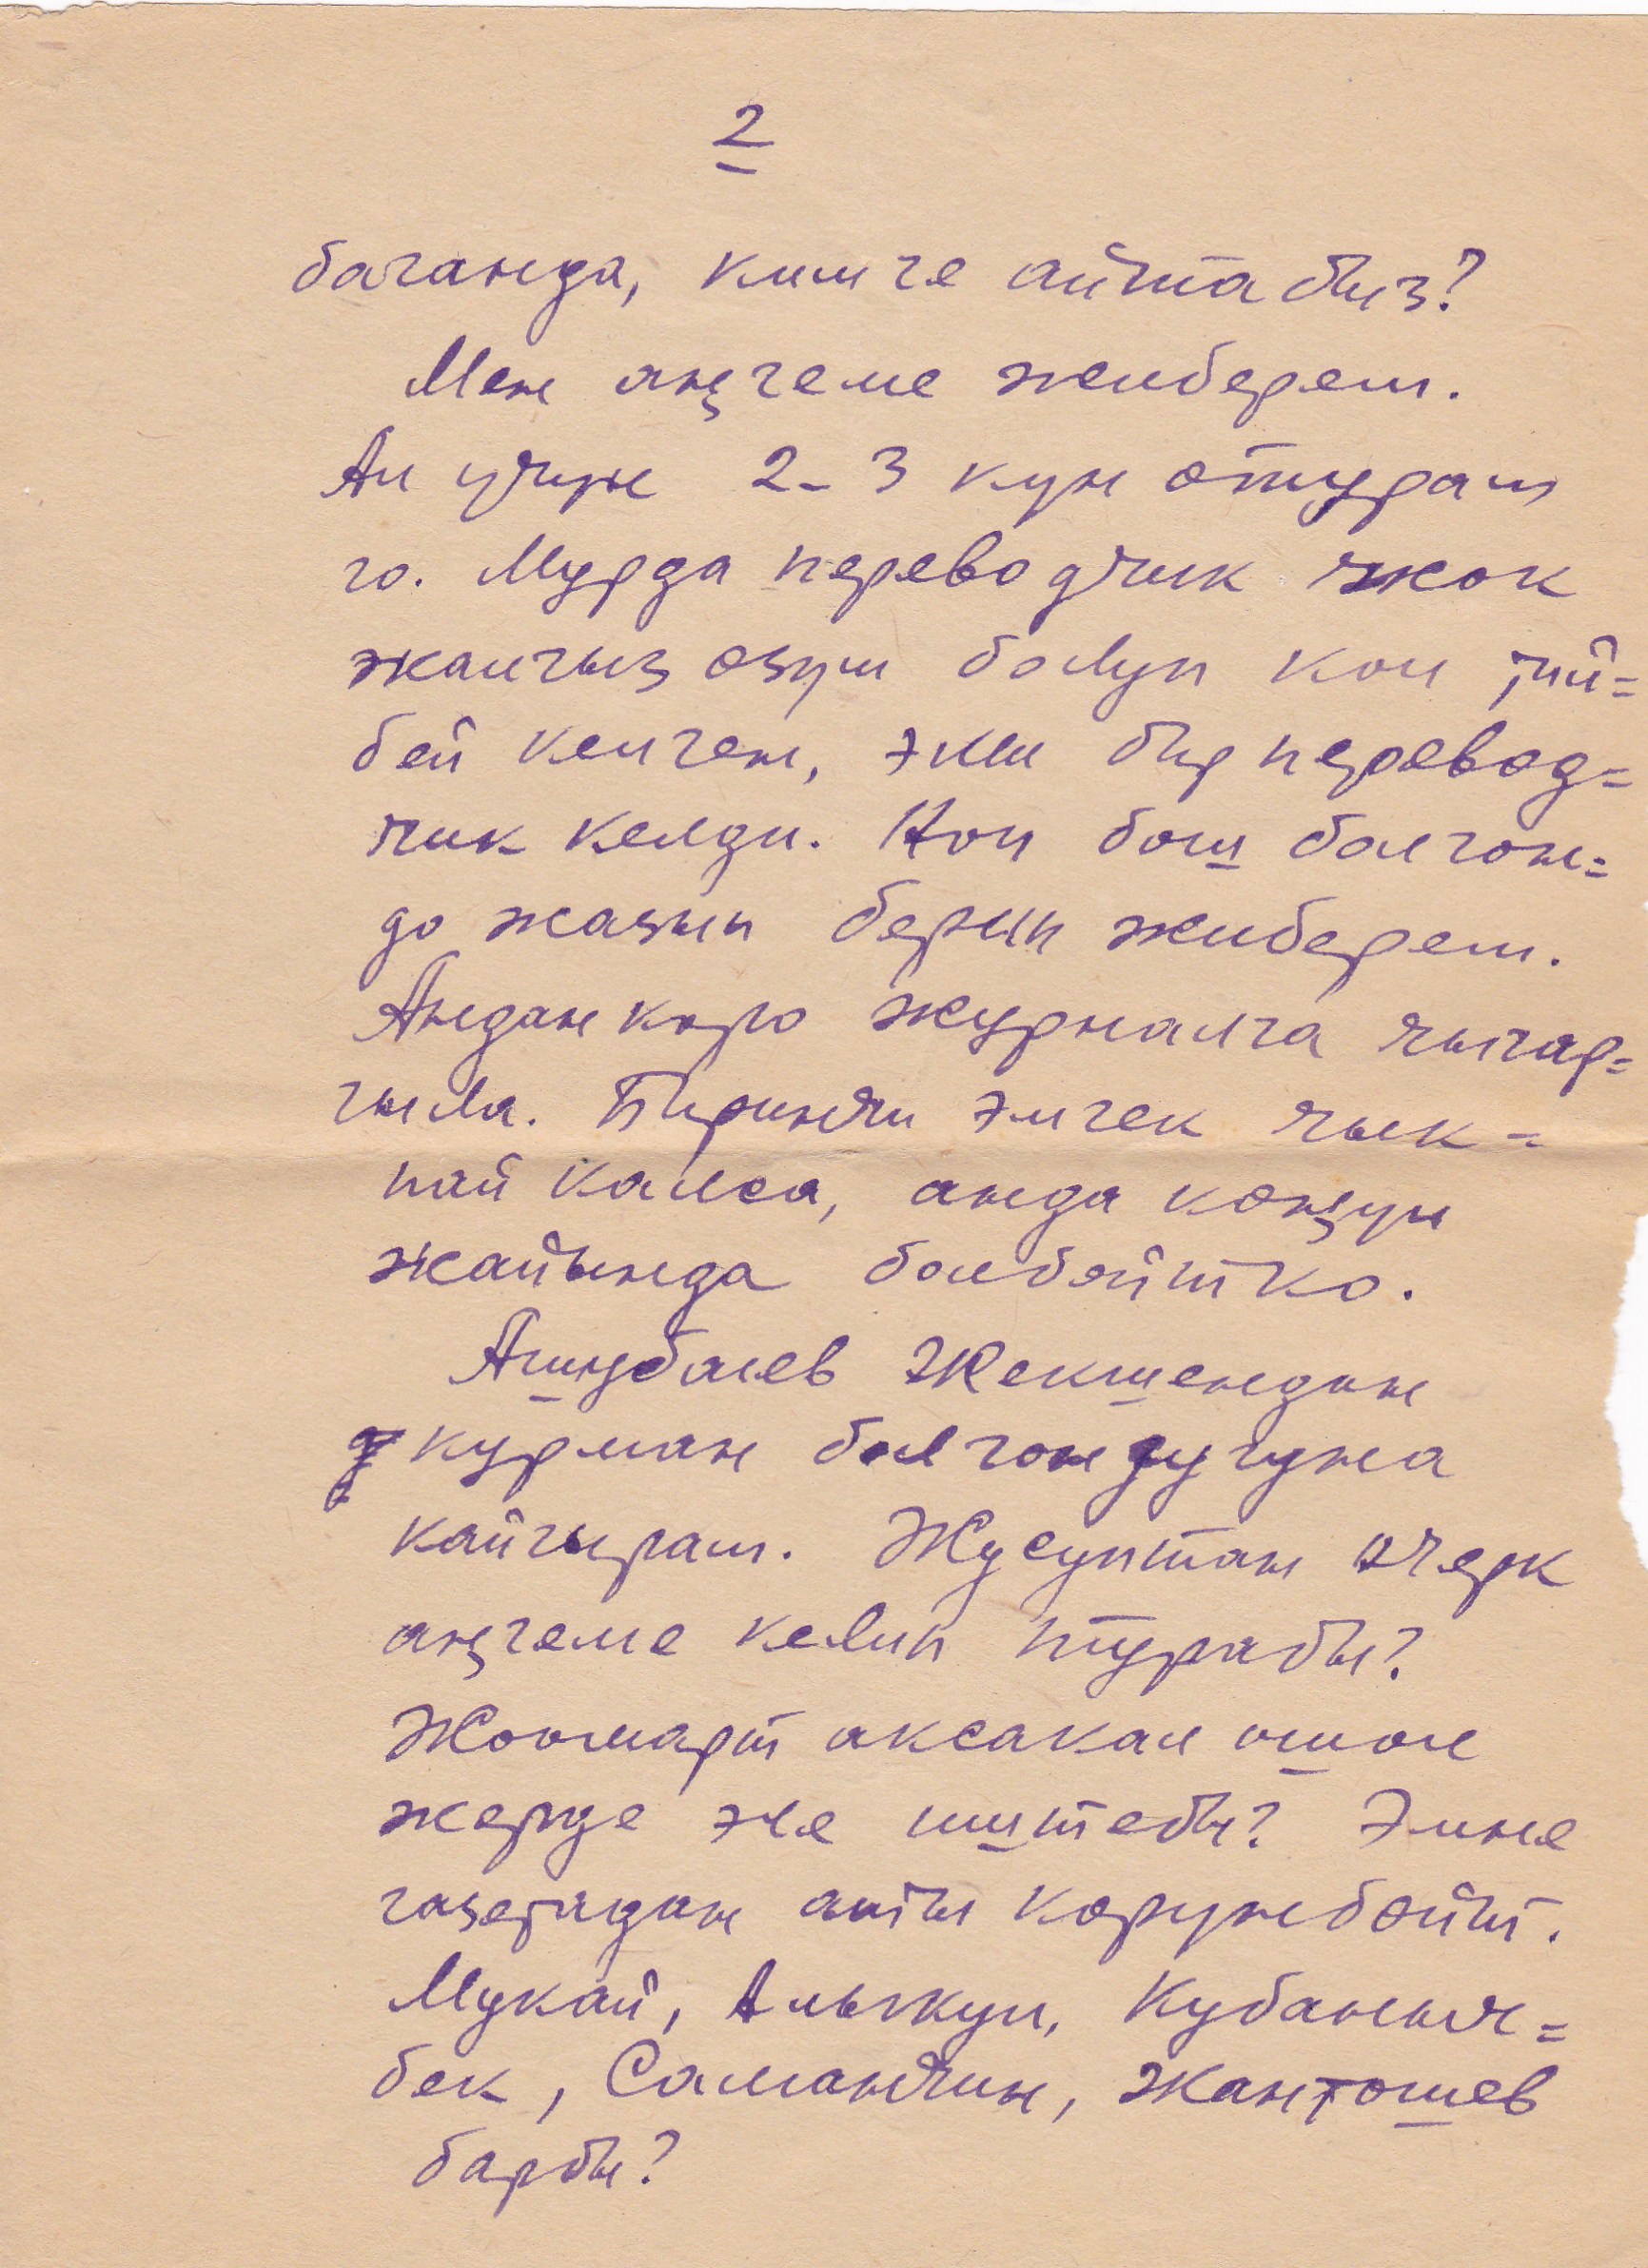 2
баганда, кимге айтабыз?
Мен аңгеме жиберем.
Ал үчүн 2-3 күн отурам
го. Мурда переводчик жок
жалгыз өзүм болуп кол тий=
бей келген, эми бир перевод=
чик келди. Кол бош болгон=
до жазып берип жиберем.
Андан көрө журналга чыгар=
гыла. Биринчи эмгек чык=
пай калса, анда көңүл
жайында болбойт ко.
Ашубаев Жекшендин
курман болгондугуна
кайгырам. Жусуптан очерк
аңгеме келип турабы?
Жоомарт аксакал ошол
жерде эле иштеби? Эмне
газетадан аты көрүнбөйт.
Мукай, Алыкул, Кубаныч=
бек, Саманчин, Жантошев
барбы?